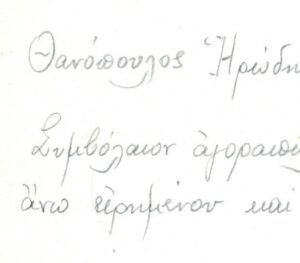 Θανόπουλος Ἡρώδη
Συμβόλαιον ἀγοραπω
ἄνω εἰρημένου καὶ